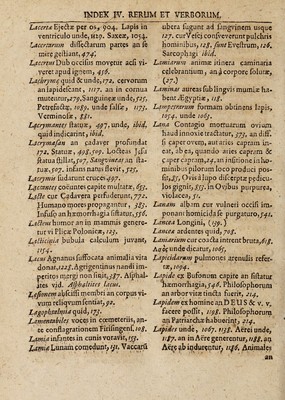 INDEX IV. RERUM ET VERBORUM.
Lacerta Ejectæ per os, 904. Lapis in
ventriculo unde, 1129. Saxex, 1054.
Lacertarum dissectarum partes an se
mire gestiant, 474.
Lacerus Dub occisus movetur acsi vi-
veret apud ignem, 456.
Lachryma quid & unde, 172. cervorum
an lapidescant, 1117. an in cornua
mutentur, 279. Sanguineæ unde, 515.
Petrefactæ, 1189. unde falsæ, 1173.
Verminosæ, 881.
Lacrymantes statuæ, 497. unde, ibid.
quid indicarint, ibid.
Lacrymasan an cadaver profundat
Statuæ, 498. 509. Locteas Isis
statua stillat, 507. Sanguineas an sta-
tuæ, 507. infans natus flevit, 525.
Lacrymis sudarunt cruces 497.
Lacontes coëuntes capite multatæ, 655.
Lacte cur Cadavera perfuderunt, 772.
Humano mores propagantur, 585.
Infuso an hæmorrhagia sistatur, 556.
Lacteus humor an in mammis genere-
tur vi Plicæ Polonicæ, 123.
Lacticinia bubula calculum juvant,
1054.
Lacus Agnanus suffocata animalia vita
donat, 1228. Agrigentinus nandi im-
peritos mergi non sinit, 387. Asphal-
ates vid. Asphaltites lacus.
Læsionem absciffi membri an corpus vi-
vum reliquum sentiat, 92.
Lagophthalmia quid, 173.
Lamentabiles voces in cœmeteriis, an-
te conflagrationem Fitisingens. 108.
Lamia infantes in cunis voravit, 155.
Lamiæ Lunam comedunt, 151. Vaccarū
ubera sugunt ad sanguinem usque
127. cur Vespi conservent pulchris
hominibus, 128. sunt Evestrum, 126.
Sarcophagi ibid.
Lamiarum animæ crininea caminaria
celebrantium, an à corpore solutæ,
(27.)
Laminas aureas sub lingvis mumiæ ha-
bent Ægyptiæ, 118.
Lampetrarum formam obtinens lapis,
1054. unde 1065.
Lana Contagio mortuarum ovium
haud innoxie tractatur, 373. an diffi-
ci caper ovem, autaries capram in-
eat, 1892. quando aries capram &
caper capram, 24. an insitione in ho-
minibus pilorum loco produci pos-
sit, 657. Ovis à lupo discerptæ pedicu-
los gignit, 857. in Ovibus purpurea,
violacea, 57.
Lanam album cur vulneri occisi im-
ponant homicida se purgaturo, 541.
Lancea Longini, (159.)
Lanceæ ardentes quid, 705.
Laniarium cur coacta intrent bruta, 618.
Aere unde dicatur, 1065.
Lapicidarum pulmones arenulis refer-
tæ, 1094.
Lapide ex Bufonum capite an sistatur
hæmorrhagia, 548. Philosophorum
an arbor vitæ tincta fuerit, 214.
Lapidem ex homine an DEUS & v. v.
facere possit, 1198. Philosophorum
an Patriarchæ habuerint, 214.
Lapides unde, 1067. 1138. Aërei unde,
1187. an in Aëre generentur, 1188. an
Aëre ab indurentur, 1186. Animales
an